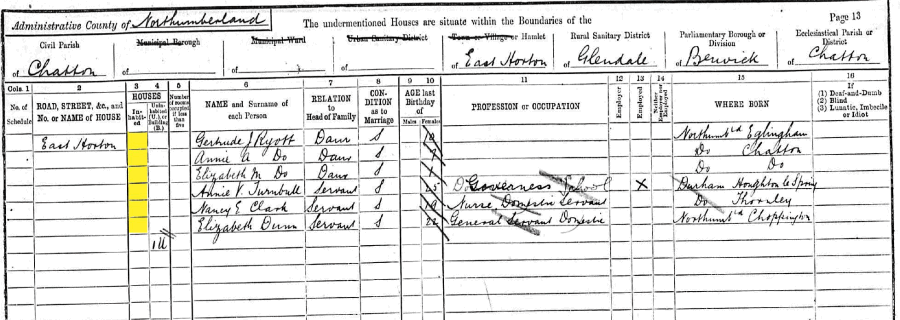 Administrative County of Northumberland The undermentioned Houses are situate within the Boundaries of the Page 13
Civil Parish Municipal Borough Municipal Ward Urban Sanitary District Town or Village or Hamlet Rural Sanitary District Parliamentary Borough or Division Ecclesiastical Parish or District
of Chatton of of of of East Horton of Glendale of Berwick of Chatton
Cols. 1 2 3 4 5 6 7 8 9 10 11 12 13 14 15 16
No. of Schedule ROAD, STREET, &c., and No. or NAME of HOUSE HOUSES Inhabited Uninhabited (U.) or Building (B.) Number of rooms occupied if less than five NAME and Surname of each Person RELATION to Head of Family CONDITION as to Marriage AGE last Birthday of Males Females PROFESSION or OCCUPATION Employer Employed Neither Employer nor Employed WHERE BORN (1) Deaf-and-Dumb (2) Blind (3) Lunatic, Imbecile or Idiot
East Horton Gertrude J Ryott Daur S Northumbld Eglingham
Annie A Do Daur S Do Chatton
Elizabeth M Do Daur S Do Do
Annie V. Turnbull Servant S 25 Governess School X Durham Houghton le Spring
Nancy E Clark Servant S 19 Nurse Domestic Servant Do Thornley
Elizabeth Dunn Servant S 22 General Servant Domestic Northumbld Choppington
1U